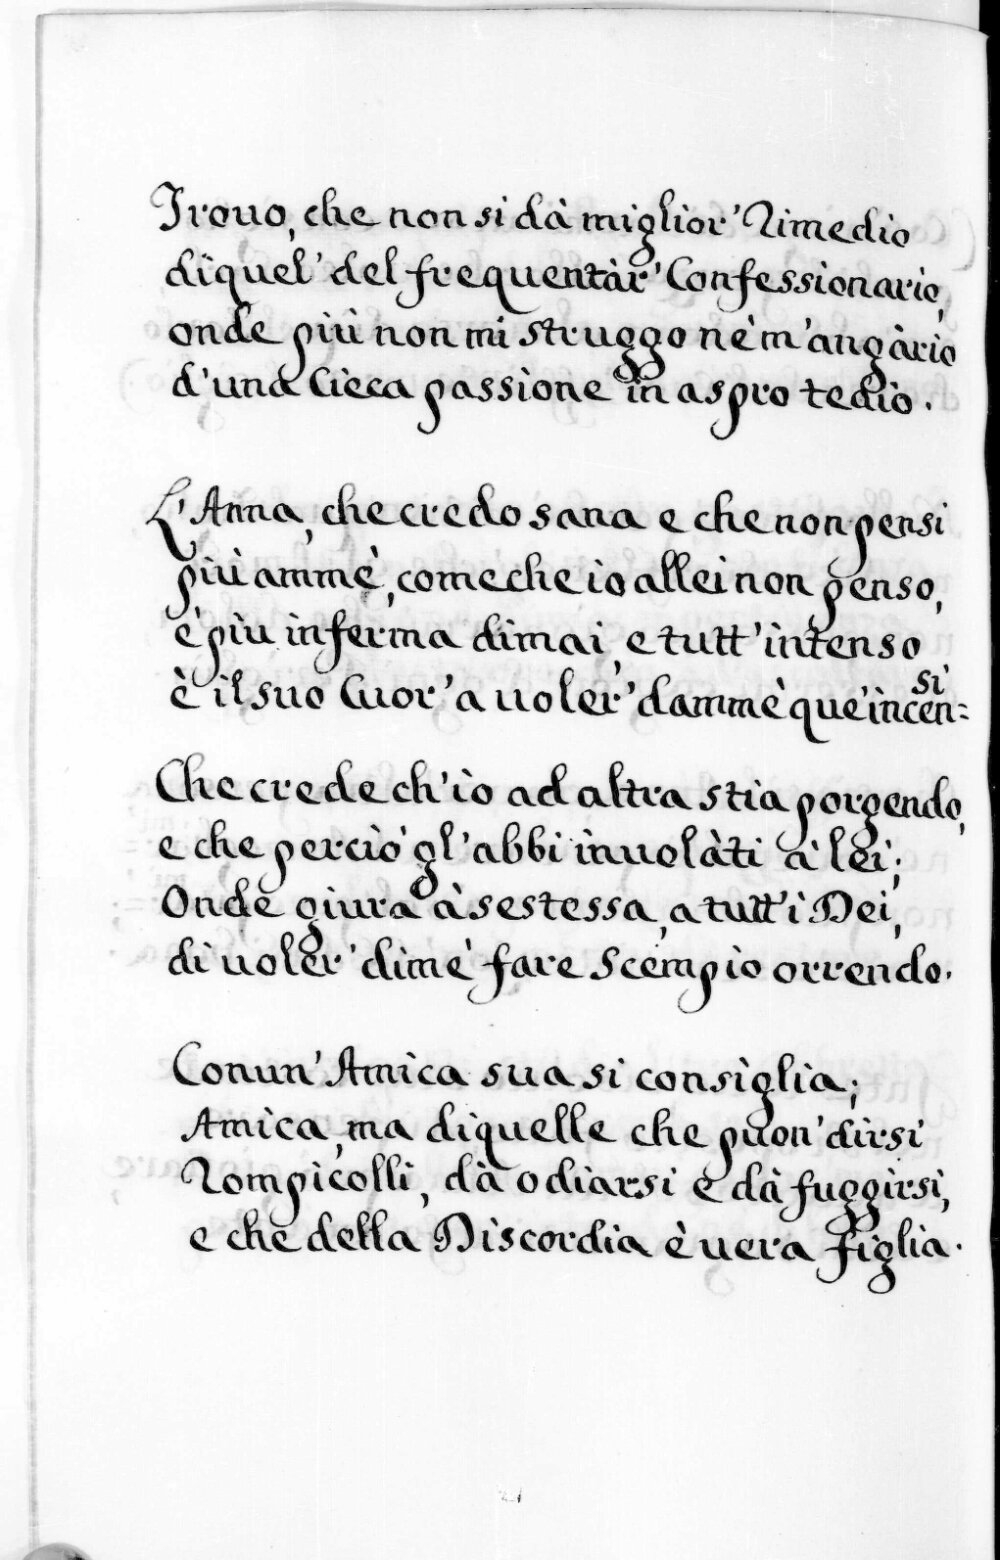 Trouo, che non si dà miglior' Rimedio
di quel' del frequentàr' Confessionario,
onde più non mi struggo nè m'angàrio
d'una Cieca passione in aspro tedio.
L'Anna, che credo sana e che non pensi
più ammè, come che io allei non penso,
è più inferma di mai, e tutt'intenso
è il suo Cuor' a uoler' dammè que' incen=
si
Che crede ch'io ad altra stia porgendo,
e che perciò gl'abbi inuolàti à lei;
Onde giura à sestessa, a tutt'i Dei,
di uoler' di mè fare scempio orrendo.
Con un' Amica sua si consiglia;
Amica, ma di quelle che puon' dirsi
Rompicolli, dà odiarsi e dà fuggirsi,
e che della Discordia è uera figlia.